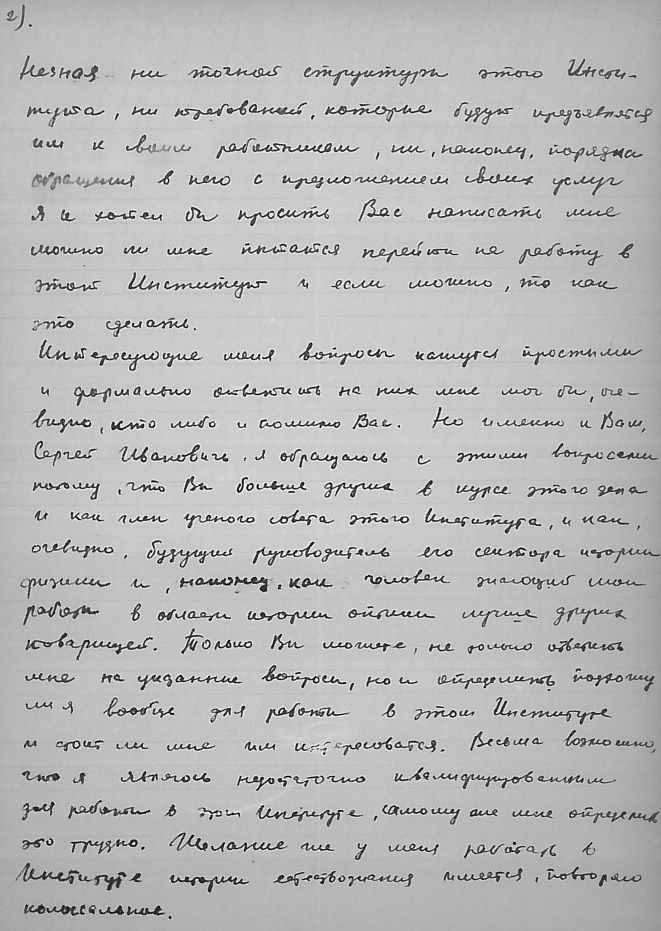 2).
Незная ни точной структуры этого Инсти-
тута, ни требований, которые будут предъявлятся
им к своим работникам, ни, наконец, порядка
обращения в него с предложением своих услуг
я и хотел бы просить Вас написать мне
можно ли мне пытаться перейти на работу в
этот Институт и если можно, то как
это сделать.
Интересующие меня вопросы кажутся простыми
и формально ответить на них мне мог бы, оче-
видно, кто либо и помимо Вас. Но именно к Вам,
Сергей Иванович, я обращаюсь с этими вопросами
потому, что Вы больше других в курсе этого дела
и как член ученого совета этого Института, и как,
очевидно, будущий руководитель его сектора истории
физики и, наконец, как человек знающий мои
работы в области истории оптики лучше других
товарищей. Только Вы можете, не только ответить
мне на указанные вопросы, но и определить подхожу
ли я вообще для работы в этом Институте
и стоит ли мне им интересоватся. Весьма возможно,
что я являюсь недостаточно квалифицированным
для работы в этом Институте, самому же мне определить
это трудно. Желание же у меня работать в
Институте истории естествознания имеется, повторяю
колоссальное.